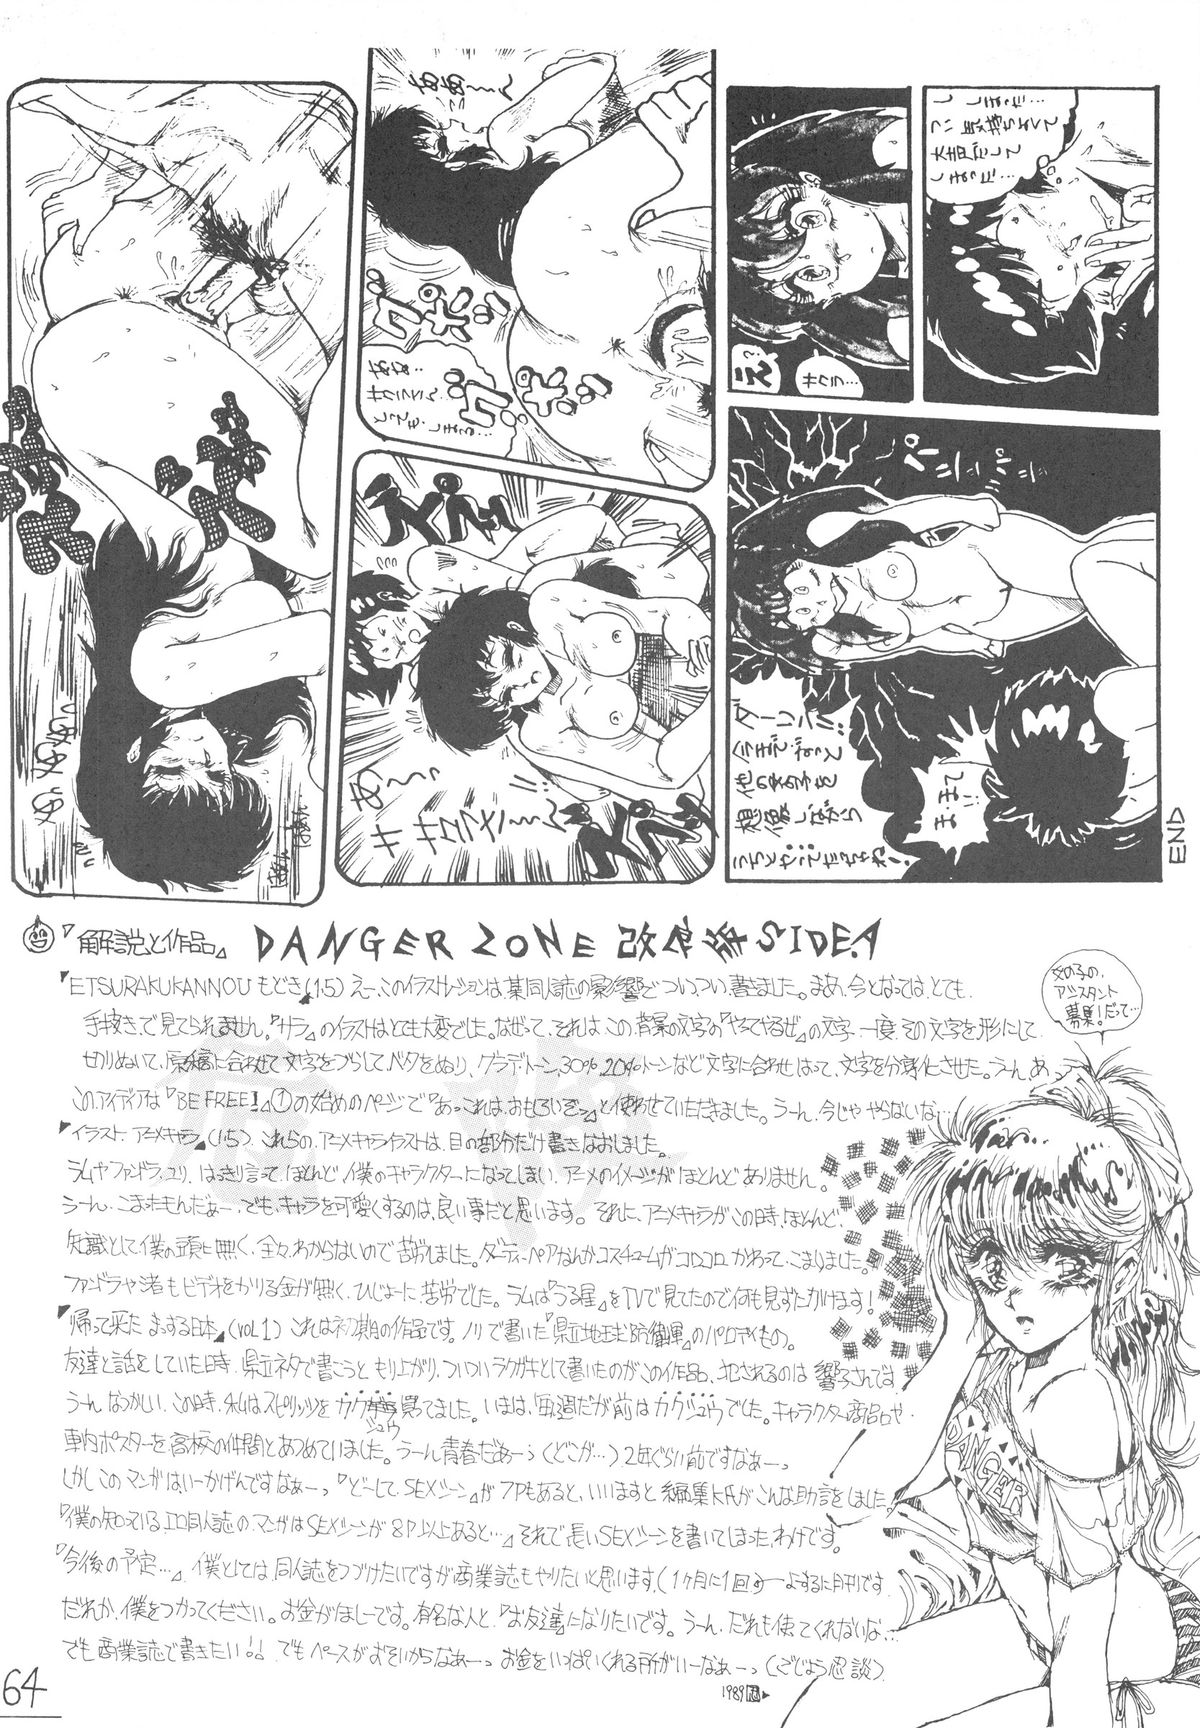 つい気持ちよくて
大声だして
しまった…
え??
サクラ…
パニニニ
ダーリン!!
今までずっと
他の女の子を
想像しながら
うちとやってたっちゃね!
ままて!!
END
ああ〜〜ん
あ〜〜っ
サ サクラさ〜〜ん
『解説と作品』 DANGER ZONE 改 SIDE.A
『ETSURAKUKANNOUもどき』(15) えー、このイラストレーションは、某同人誌の影響で、つい、つい、書きました。まあ、今となっては、とても、
手抜きで見てられません。『サラ』のイラストはとても大変でした。なぜって、それは、この背景の文字の『やってやるぜ』の文字、一度、その文字を形にして、
切りぬいて、原稿に合わせて文字をづらしてベタをぬり、グラデ・トーン、30% 20%トーンなど文字に合わせはって、文字を分身化させた。うーん、あっ
この、アイディアは『BE FREE!』①の始めのページで『あっこれは、おもしろいぞっ』と使わせていただきました。うーん、今じゃ、やらないな…
『イラスト、アニメキャラ』(15) これらの、アニメキャライラストは、目の部分だけ書きなおしました。
ラムやファンドラ、ユリ、はっきり言って、ほとんど、僕のキャラクターになってしまい、アニメのイメージがほとんどありません。
うーん、こまったもんだぁー、でも、キャラを可愛くするのは、良い事だと思います。それに、アニメキャラが、この時、ほとんど、
知識として、僕の頭に無く、全々、わからないので苦労しました。ダーティーペアなんか、コスチュームがコロコロ、かわって、こまりました。
ファンドラや渚もビデオをかりる金が無く、ひじょーに苦労でした。ラムは『うる星』をTVで見てたので何も見ずにかけます!
『帰って来たまっする日本』(VOL1) これは初期の作品です。ノリで書いた『県立地球防衛軍』のパロディもの。
友達と話をしていた時、県立ネタで書こうともり上がり、ついついラクガキとして書いたのがこの作品、犯されるのは、響子さんでは、
うーん、なつかしい、この時、私はスピリッツをカクジュウ買ってました。いまは、毎週だが前はカクジュウでした。キャラクター商品や、
車内ポスターを高校の仲間とあつめていました。うーん青春だあーっ(どこが…)2年ぐらい前ですなぁーっ
しかしこのマンガはいーかげんですなぁーっ『どーして、SEXシーン』が7Pもあると、いいますと編集K氏がこんな助語をしました。
『僕の知っているエロ同人誌のマンガはSEXシーンが8P以上あると…』それで長いSEXシーンを書いてしまった、わけです。
『今後の予定…』僕としては同人誌をつづけたいですが商業誌もやりたいと思います、(1ヶ月に1回 よーするに月刊です
だれか、僕をつかってください。お金がほしーです。有名な人と『お友達』になりたいです。うーん、だれも使ってくれないな…
でも商業誌で書きたい!! でもペースがおそいからなぁーっ お金をいっぱいくれる所がいーなぁーっ(ざじょう忍談)
1989
女の子の、
アシスタント
募集!だって…
DANGER
64